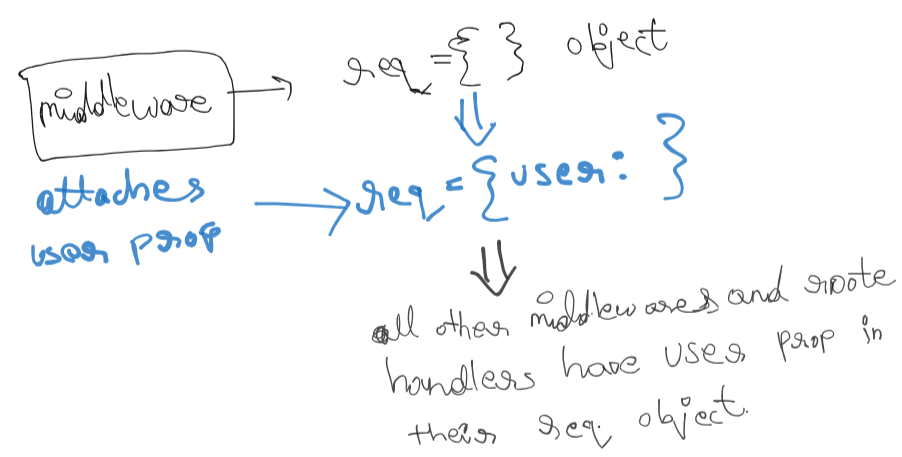 req = { } object
middleware
attaches
user prop
req = { user: }
all other middlewares and route
handlers have user prop in
their req. object.